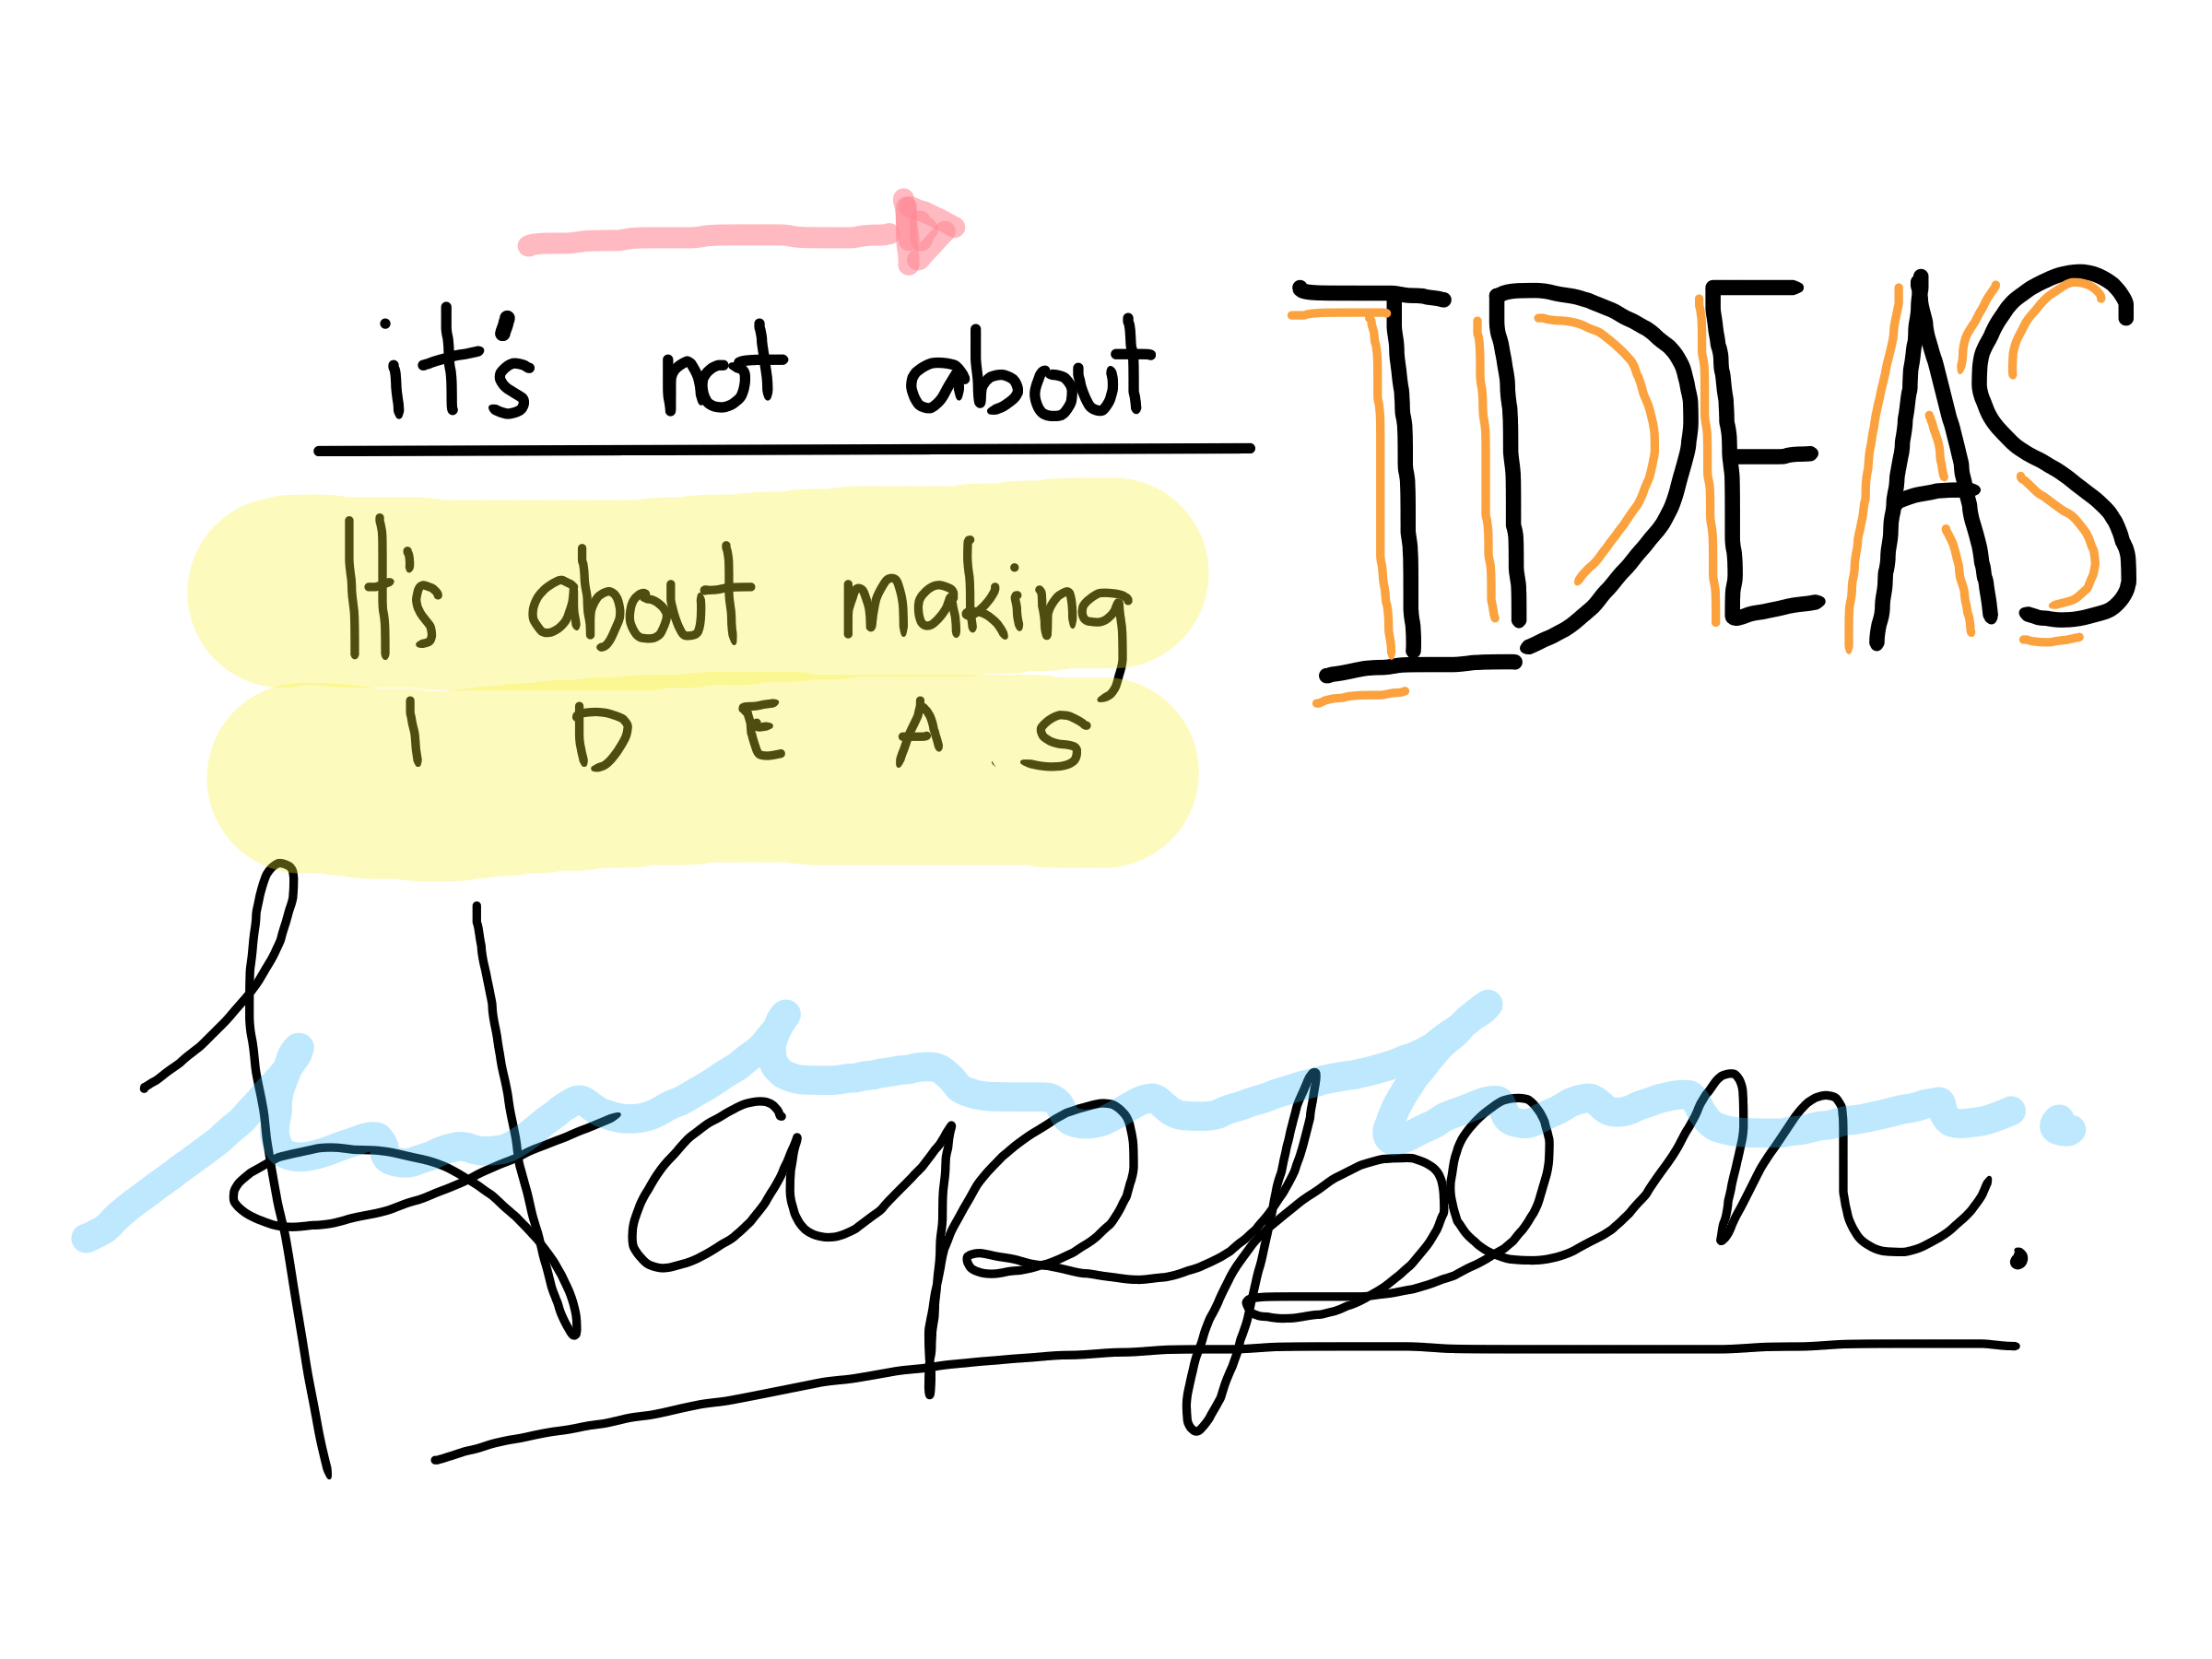 it's not about IDEAS
It's about making
IDEAS
Happen.